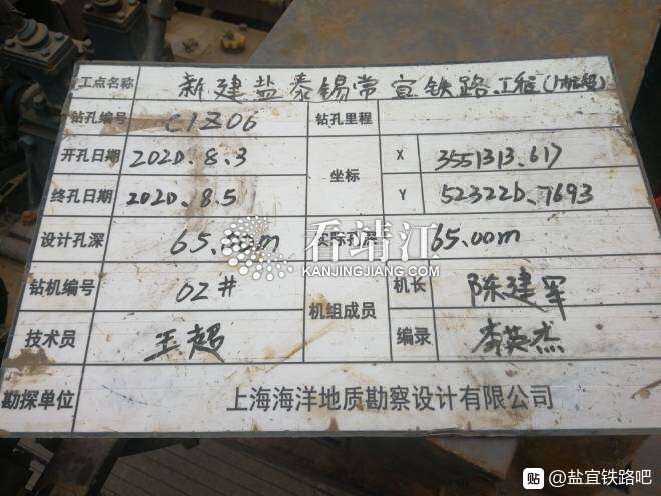 工点名称 新建盐泰锡常宜铁路工程
钻孔编号 C1Z06 钻孔里程
开孔日期 2020.8.3 坐标 X 3551313.617
终孔日期 2020.8.5 Y 523226.7693
设计孔深 65.00m 实际孔深 65.00m
看靖江
KANJINGJIANG.COM
钻机编号 02# 机组成员 机长 陈建军
技术员 王超 编录 李英杰
勘探单位 上海海洋地质勘察设计有限公司
贴吧 @盐宜铁路吧